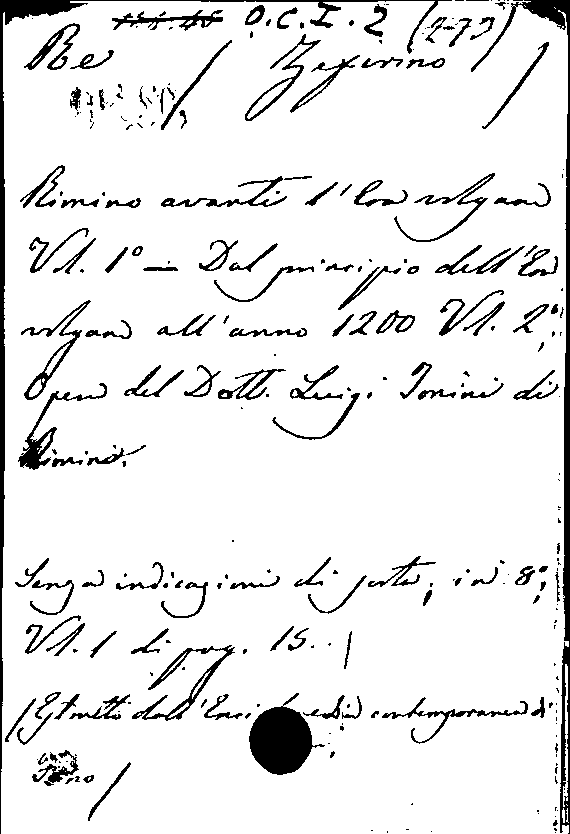 O.C.I.2 (2-73)
Re / Zefirino /
Rimino avanti l'Era volgare
Vol. 1º — Dal principio dell'Era
volgare all'anno 1200 Vol. 2º;
Opera del Dott. Luigi Tonini di
Rimini.
Senza indicazioni di sorta; in 8º;
Vol. 1 di pag. 15.. /
/Estratto dall' contemporanea di
Fano /